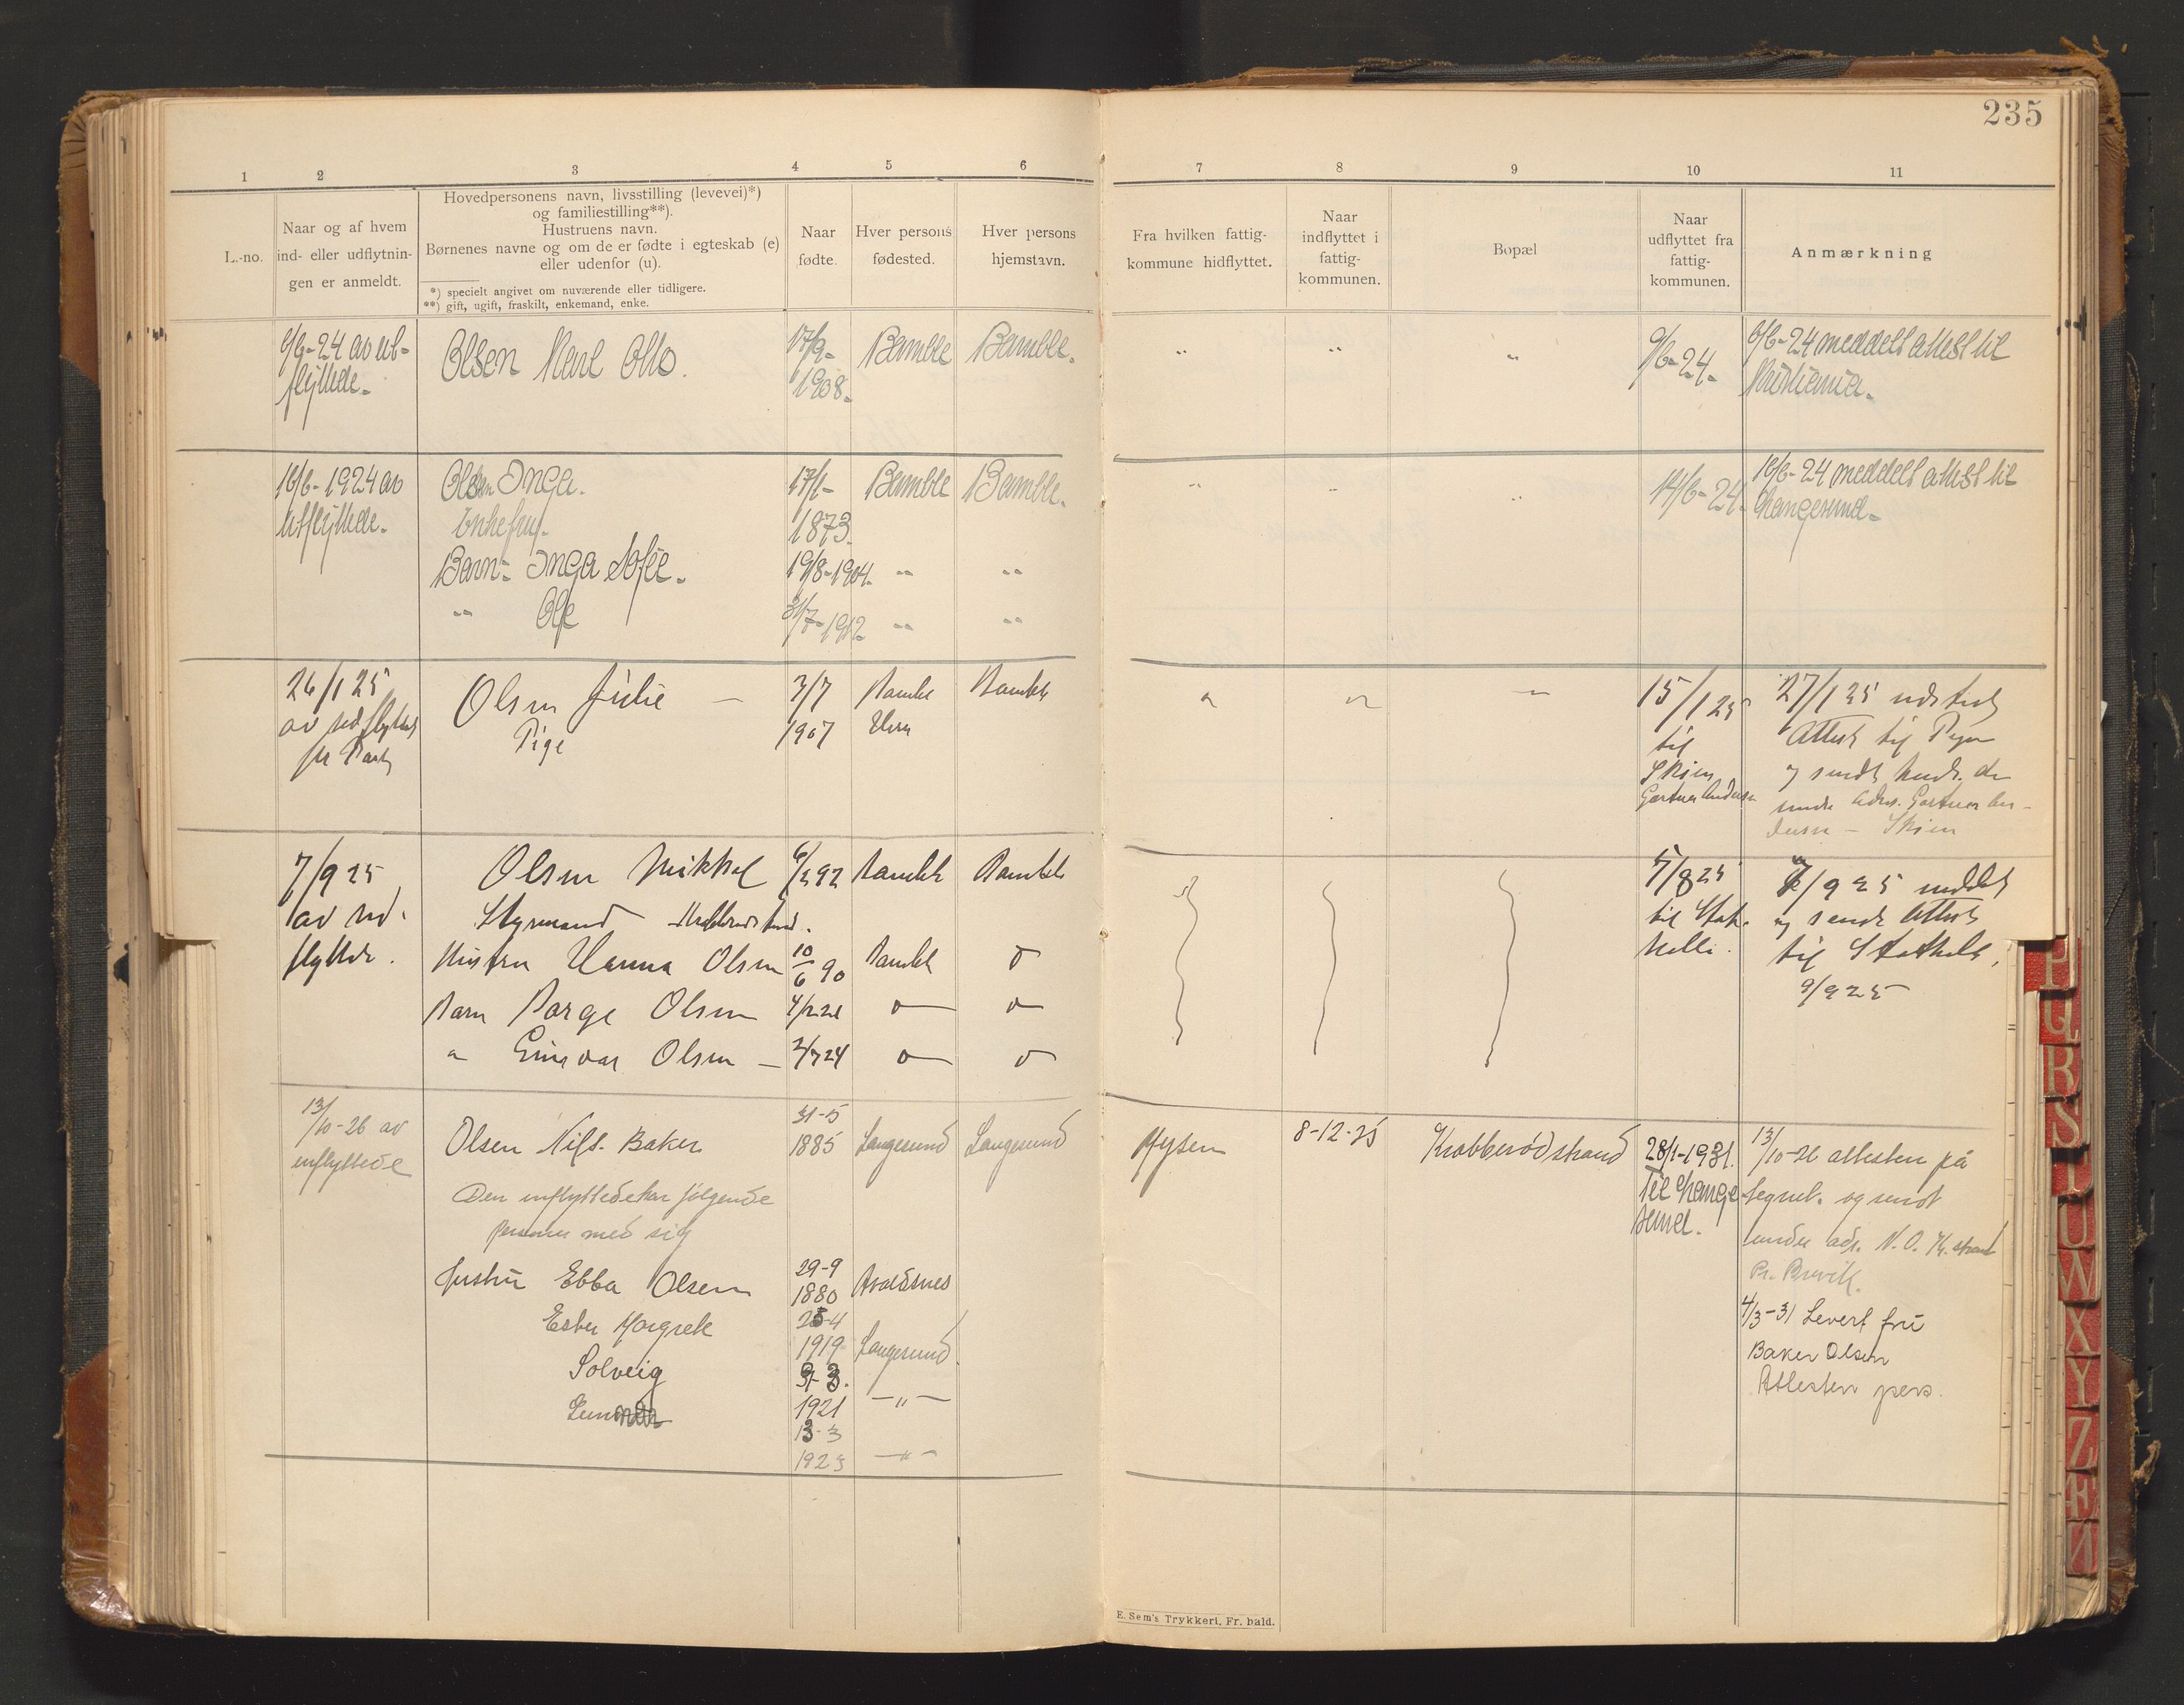 235
1 2 3 4 5 6 7 8 9 10 11
L.-no.
Naar og af hvem
ind- eller udflytnin-
gen er anmeldt.
Hovedpersonens navn, livsstilling (levevei)*)
og familiestilling**).
Hustruens navn.
Børnenes navne og om de er fødte i egteskab (e)
eller udenfor (u).
*) specielt angivet om nuværende eller tidligere.
**) gift, ugift, fraskilt, enkemand, enke.
Naar
fødte.
Hver persons
fødested.
Hver persons
hjemstavn.
Fra hvilken fattig-
kommune hidflyttet.
Naar
indflyttet i
fattig-
kommunen.
Bopæl
Naar
udflyttet fra
fattig-
kommunen.
Anmærkning
6/6-24 av ut-
flyttede-
Olsen Karl Otto.
17/9-
1908-
Bamble
Bamble-
" " "
6/6-24-
6/6-24 meddelt attest til
Kristiania-
16/6-1924 av
utflyttede-
Olsen Inga.
Enkefru-
17/1-
1873
Bamble
Bamble-
" " "
14/6-24-
16/6-24 meddelt attest til
Langesund-
Barn- Inga Sofie- 19/8-1904- " "
" Olf 31/7-1912 " "
26/1 25
av udflyttet
Olsen Julie —
Pige
3/7
1907
Bamble
Bamble
15/1 25
til
Skien
Gartner Andersen
27/1 25 utstedt
Attest til
og sendt
under Adrs. Gartner An-
dersen — Skien
7/9 25
av ud-
flyttede.
Olsen Mikkel 92 Bamble Bamble
Styrmand
Hustru Hanna Olsen 10/6 90 Bamble
Barn Borge Olsen
" Olsen — 2/7 24
7/8 25
til Stat-
helle.
7/9 25 meddelt
og sendt Attest
til Stathelle.
9/9 25
13/10-26 av
innflyttede
Olsen Nils. Baker
31-5
1885
Langesund
Langesund
8-12-25
Krabberødstrand
28/1-1931.
Til Lange-
sund.
13/10-26 attesten på
tegnet. og sendt
under adr. N. O. K. strand
Pr. Brevik.
4/3-31 Levert fru
Baker Olsen
Attesten pers.
Den innflyttede har følgende
personer med sig
Hustru Ebba Olsen
29-9
1880
Avaldsnes
Ester Margrete
25-4
1919
Langesund
Solveig
1921
—"—
Gunnar
13-3
1923
—"—
E. Sem's Trykkeri, Fr. hald.
P
Q
R
S
T
U
W
X
Y
Z
Æ
Ø